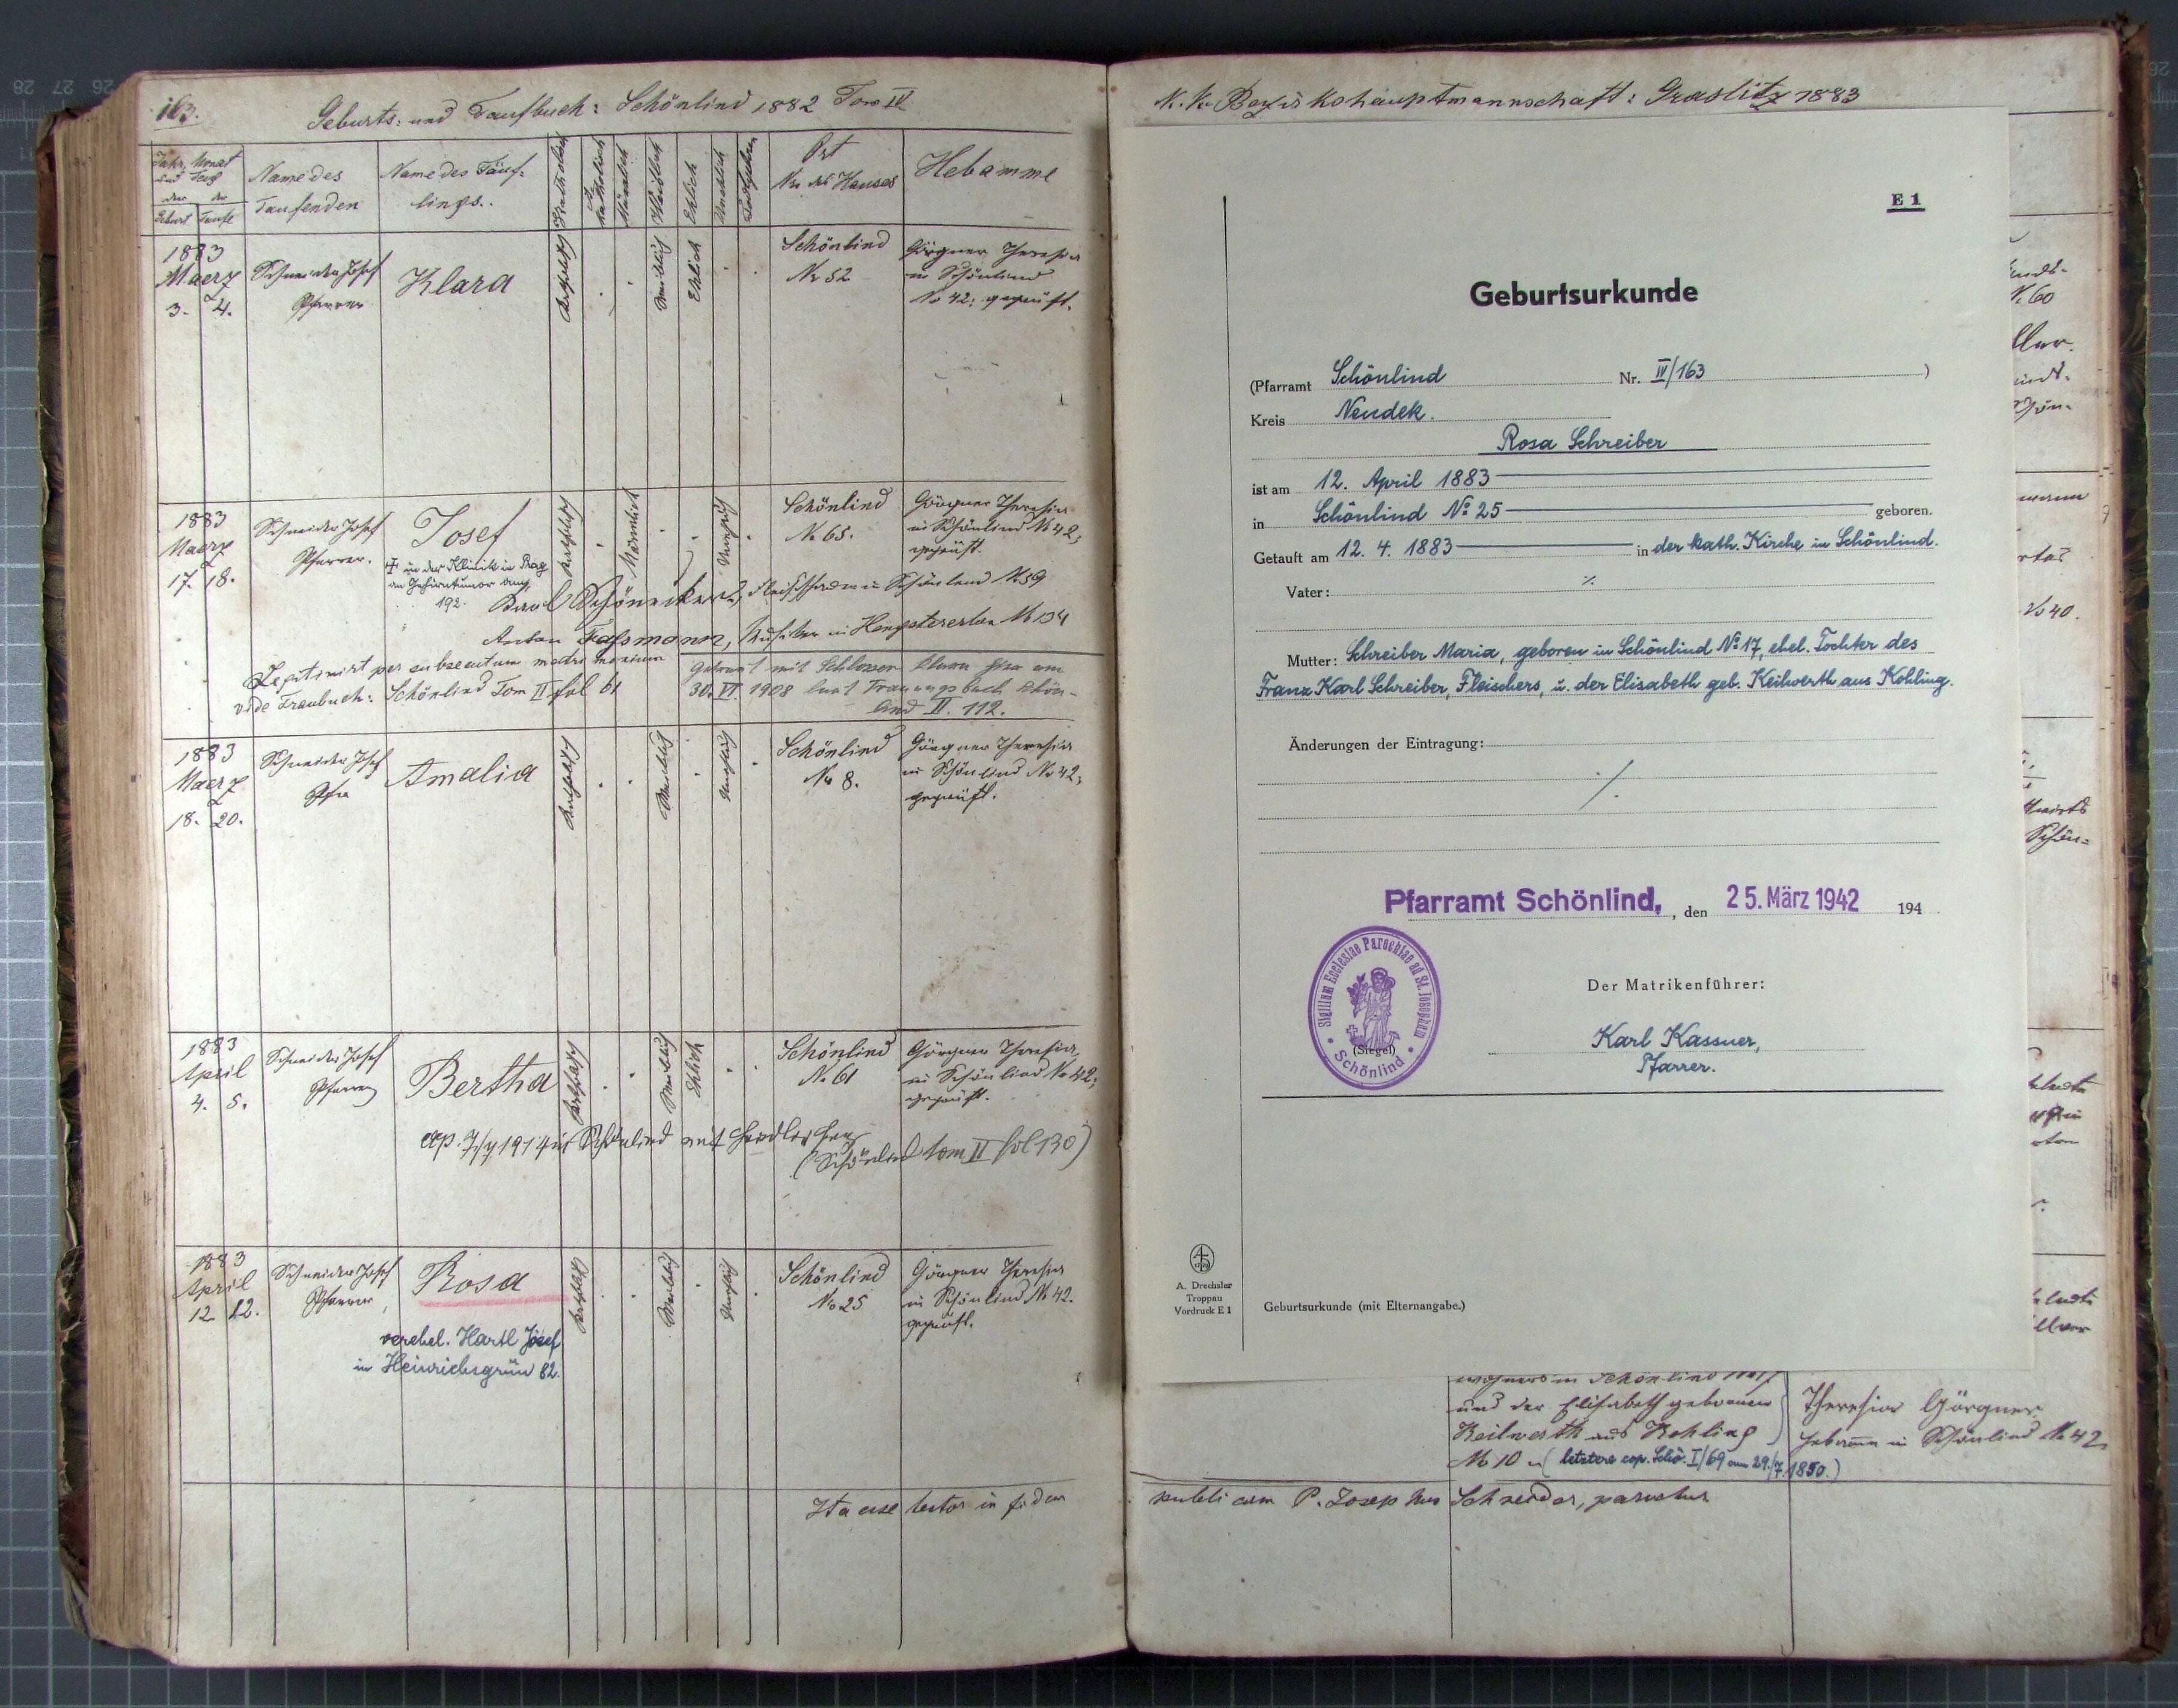 163.
Geburts: und Taufbuch: Schönlind 1882 Tom IV
Jahr, Monat
und Tag
der der
Geburt Taufe
Name des
Taufenden
Name des Täuf-
lings.
Katholisch
Männlich
Weiblich
Ehlich
Unehlich
Ort
Nro des Hauses
Hebamme
1883
Maerz
3. 4.
Schneider Josef
Pfarrer
Klara
Katholisch
Weiblich
Ehlich
Schönlind
Nr 52
Görgner Theresia
in Schönlind
No 42; geprüft.
1883
Maerz
17. 18.
Schneider Josef
Pfarrer.
Josef
† in der Klinik in Prag
an Gehirntumor
192.
Katholisch
Männlich
Unehlich
Schönlind
No 65.
Görgner Theresia
in Schönlind No 42;
geprüft.
Karl in Schönlind No 59
Anton Fassmann, in No 134
Legitimirt per subsecutum matrimonium
vide Traubuch: Schönlind Tom II fol 61
getraut mit Schlosser am
30. VI. 1908 laut Trauungsbuch Schön-
lind II. 112.
1883
Maerz
18. 20.
Schneider Josef
Pfr
Amalia
Katholisch
Weiblich
Unehlich
Schönlind
No 8.
Görgner Theresia
in Schönlind No 42;
geprüft.
1883
April
4. 5.
Schneider Josef
Pfarrer
Bertha
Katholisch
Weiblich
Ehlich
Schönlind
No 61
Görgner Theresia
in Schönlind No 42;
geprüft.
cop. 1914 in Schönlind mit
(Schönlind tom II fol 130)
1883
April
12. 12.
Schneider Josef
Pfarrer
Rosa
Katholisch
Weiblich
Unehlich
Schönlind
No 25
Görgner Theresia
in Schönlind No 42.
geprüft.
verehel. Hartl Josef
in Heinrichsgrün 82.
Ita esse testor in fidem
K. K. Bezirkshauptmannschaft: Graslitz 1883
E 1
Geburtsurkunde
(Pfarramt Schönlind Nr. IV/163 )
Kreis Neudek.
Rosa Schreiber
ist am 12. April 1883
in Schönlind No 25 geboren.
Getauft am 12. 4. 1883 in der kath. Kirche in Schönlind.
Vater: ·/.
Mutter: Schreiber Maria, geboren in Schönlind No 17, ehel. Tochter des
Franz Karl Schreiber, Fleischers, u. der Elisabeth geb. Keilwerth aus Kohling.
Änderungen der Eintragung:
·/.
Pfarramt Schönlind, , den 25. März 1942 194
Sigillum Ecclesiae Parochiae ad St. Josephum
Schönlind
(Siegel)
Der Matrikenführer:
Karl Kassner,
Pfarrer.
A. Drechsler
Troppau
Vordruck E 1
Geburtsurkunde (mit Elternangabe.)
N. 60
No 40.
in Schönlind No 17
und der Elisabeth gebornen
Keilwerth aus Kohling
No 10 (letztere cop. Schö. I/69 am 29./7.1850.)
Theresia Görgner
Hebamme in Schönlind No 42
publicam P. Josephus Schneider, parochus